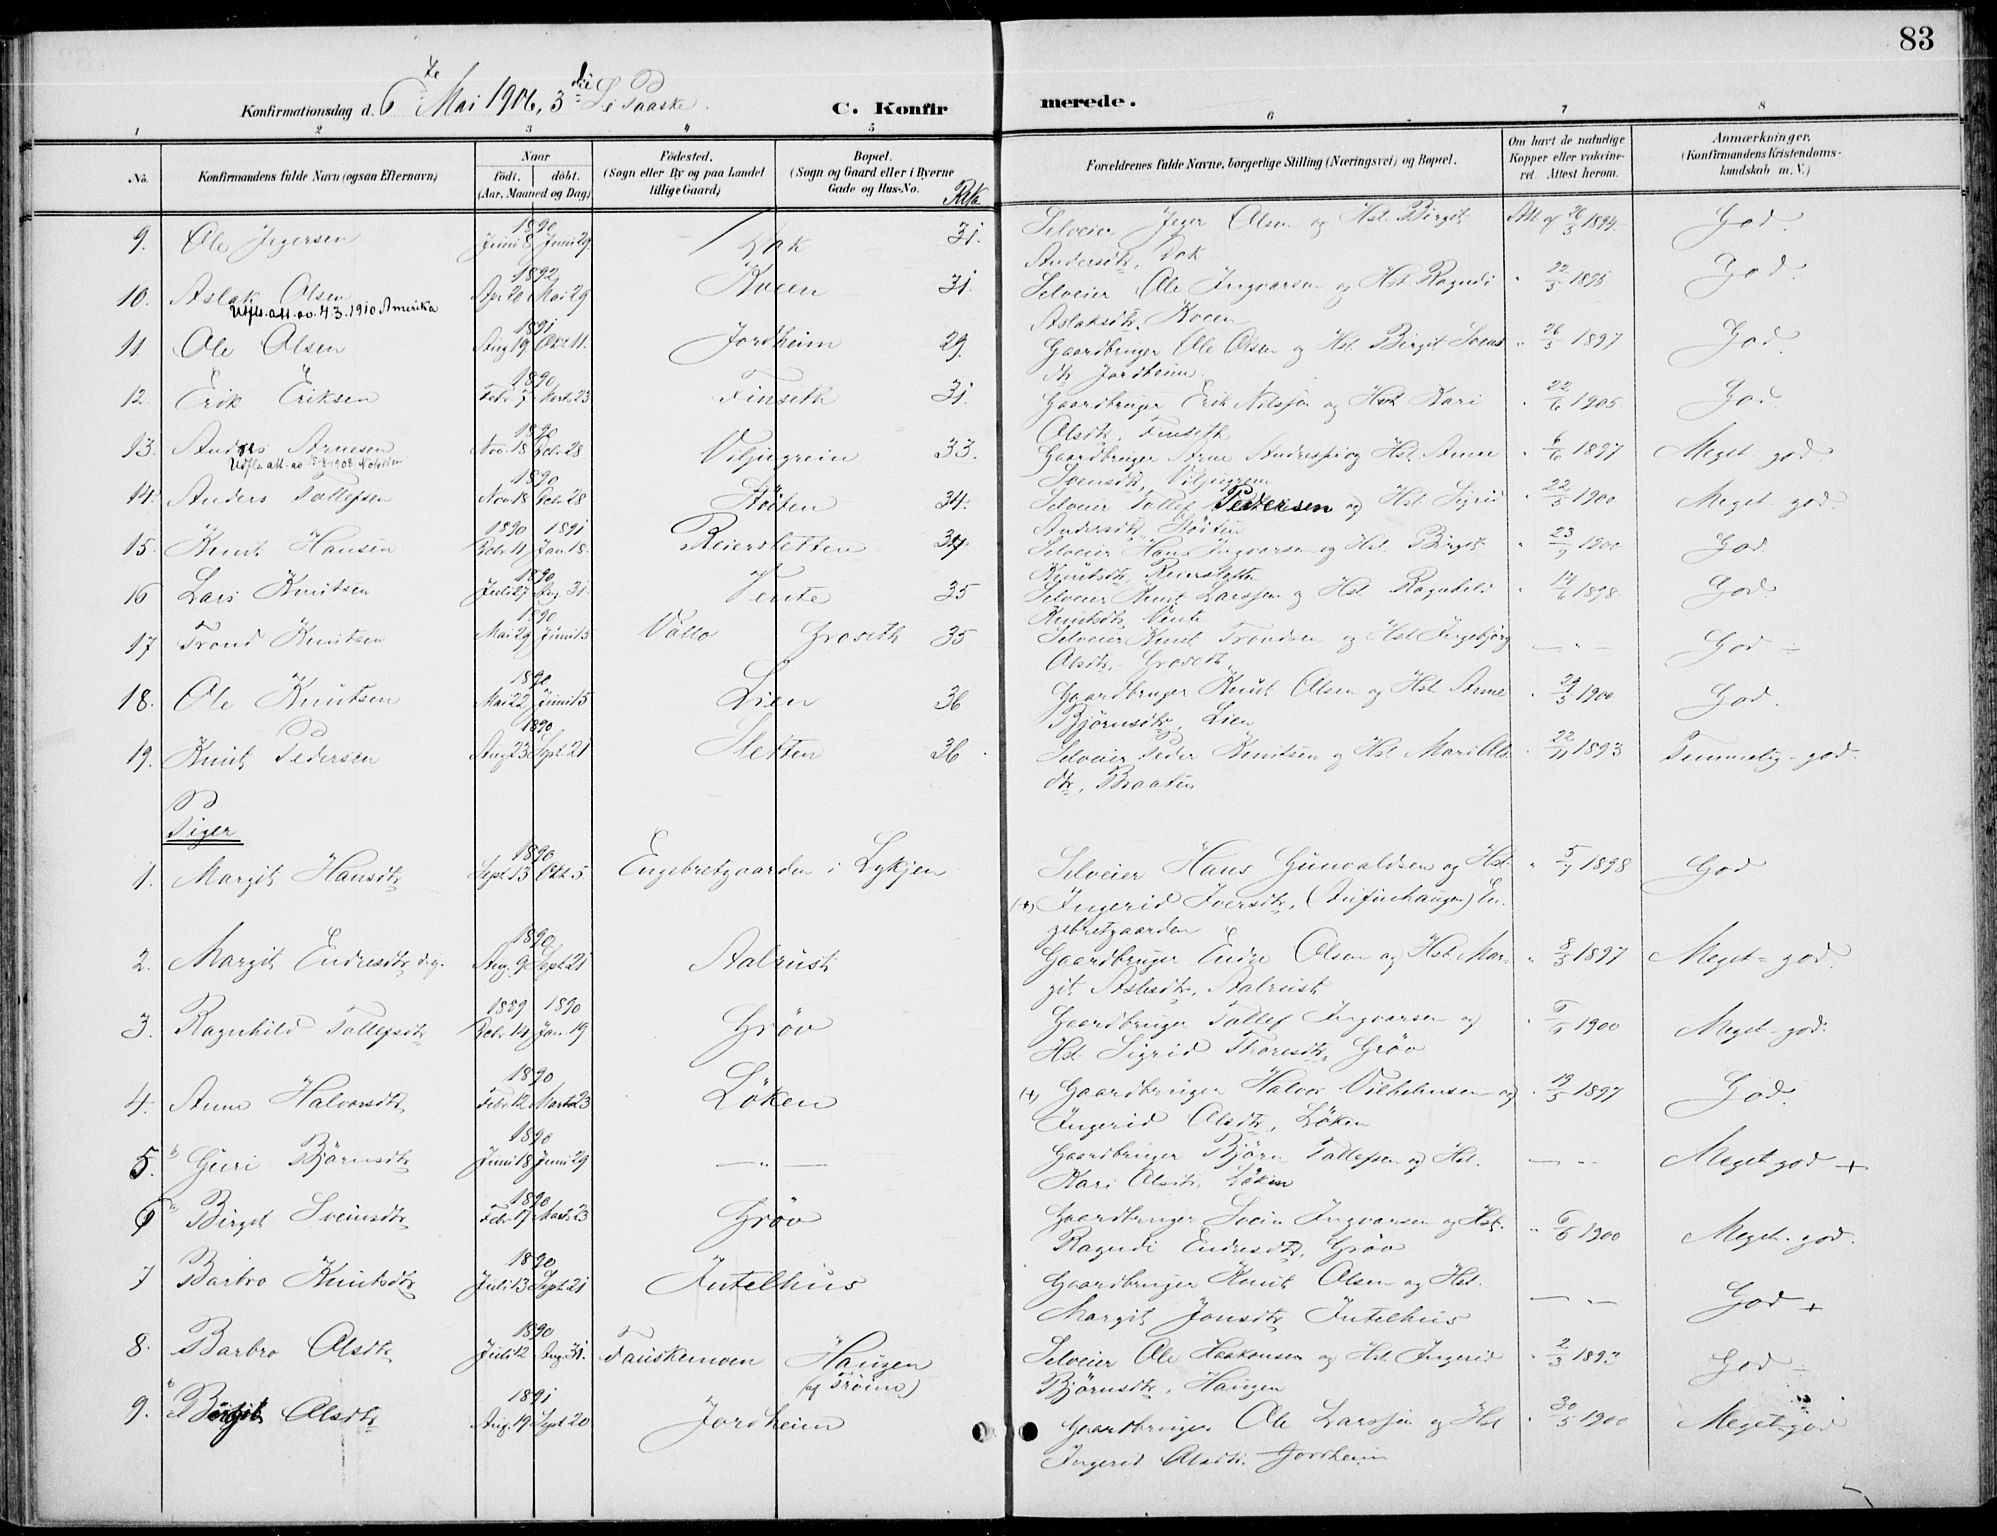 83
Konfirmationsdag d. 6te Mai 1906, 3die S. e. Paaske.
C. Konfirmerede.
1 2 3 4 5 6 7 8
No.
Konfirmandens fulde Navn (ogsaa Efternavn)
Naar
født. døbt.
(Aar, Maaned og Dag)
Fødested.
(Sogn eller By og paa Landet tillige Gaard)
Bopæl.
(Sogn og Gaard eller i Byerne Gade og Hus-No.
Forældrenes fulde Navne, borgerlige Stilling (Næringsvei) og Bopæl.
Om havt de naturlige Kopper eller vakcineret. Attest herom.
Anmærkninger.
(Konfirmandens Kristendomskundskab m. V.)
9. Ole Jegersen 1890 Juni 8 Juni 29 31. Selveier Jeger Olsen og Hst. Birgit Andersdtr. 26/3 1894 God.
10. Aslak Olsen 1892 Apr 20 Mai 29 Kveen 31. Selveier Ole Ingvarsen og Hst. Ragndi Aslaksdtr. Kveen " 22/5 1895 God.
Udfl. att. av 4.3.1910 Amerika
11. Ole Olsen 1891 Aug 19 Okt 11. Jordheim 29. Gaardbruger Ole Olsen og Hst. Birgit Svens dtr Jordheim. " 26/5 1897 God.
12. Erik Eriksen 1890 Febr. 7 Marts 23 Finseth 31. Gaardbruger Erik Nilssen og Hst Kari Olsdtr. Finseth " 22/6 1905 God.
13. Anders Arnesen 1890 Nov. 18 Dcbr. 28 Viljugrein 33. Gaardbruger Arne Anderssen og Hst. Anne Svensdtr. Viljugrein " 6/6 1897 Meget god.
14. Anders Tollefsen 1890 Nov 18 Dcbr 28 Støiten 34. Selveier Tollef Pedersen og Hst. Sigrid Andersdtr. Støiten " 22/5 1900 Meget god.
15. Knut Hansen 1890 1891 Dcbr. 11 Jan. 18. Reiersletten 34. Selveier Hans Ingvarsen og Hst. Birgit Knutsdtr. Reiersletten " 23/9 1900 God
16 Lars Knutsen 1890 Juli 27 Aug. 31. Vente 35 Selveier Knut Larssen og Hst Ragnhild Knutsdtr. Vente " 14/6 1898 God.
17 Trond Knutsen 1890 Mai 29 Juni 15 Vallo Groseth 35 Selveier Knut Trondsen og Hst Ingebjørg Olsdtr. Groseth — " — God ÷
18. Ole Knutsen 1890 Mai 22 Juni 15 Lien 36 Gaardbruger Knut Olsen og Hst. Anne Bjørnsdtr. Lien " 29/5 1900 God.
19. Knut Pedersen 1890 Aug 23 Sept 21 Sletten 36 Selveier Peder Knutsen og Hst. Mari Ols dtr., Braaten " 22/11 1893 Temmelig god.
Piger
1. Margit Hansdtr. 1890 Sept 13 Okt. 5 Engebretgaarden i Lykjen Selveier Hans Gunvaldsen og Hst. (+) Ingerid Iversdtr. (Anfinhaugen) Engebretgaarden " 5/7 1898 God
2. Margit Endresdtr. 1890 Aug. 9 Sept 21 Aalrust Gaardbruger Endre Olsen og Hst. Margit Aslesdtr. Aalrust " 8/3 1897 Meget god.
3. Ragnhild Tollefsdtr. 1889 1890 Dcbr. 14 Jan. 19 Grøv Gaardbruger Tollef Ingvarsen og Hst Sigrid Thoresdtr. Grøv 1900 Meget god.
4. Anne Halvorsdtr. 1890 Febr 12 Marts 23 Løken (+) Gaardbruger Halvor Vilhelmsen og Ingerid Olsdtr. Løken " 19/5 1897 God.
5. Guri Bjørnsdtr. 1890 Juni 18 Juni 29 — " — Gaardbruger Bjørn Tollefsen og Hst. Kari Olsdtr. Løken — " — Meget god +
6 Birgit Sveinsdtr. 1890 Febr. 17 Marts 23 Grøv Gaardbruger Svein Ingvarsen og Hst. Ragndi Endresdtr. Grøv 1900 Meget god.
7 Barbro Knutsdtr. 1890 Juli 13 Sept. 21 Intelhus Gaardbruger Knut Olsen og Hst. Margit Jonsdtr. Intelhus — " — God +
8. Barbro Olsdtr. 1890 Juli 12 Aug. 31. Fauskemoen Haugen (af Trøim) Selveier Ole Haakonsen og Hst Ingerid Bjørnsdtr. Haugen " 2/3 1893 God ÷
9. Birgit Olsdtr. 1891 Aug. 19 Sept 20 Jordheim Gaardbruger Ole Larssen og Hst Ingerid Olsdtr. Jordheim " 30/5 1900 Meget god